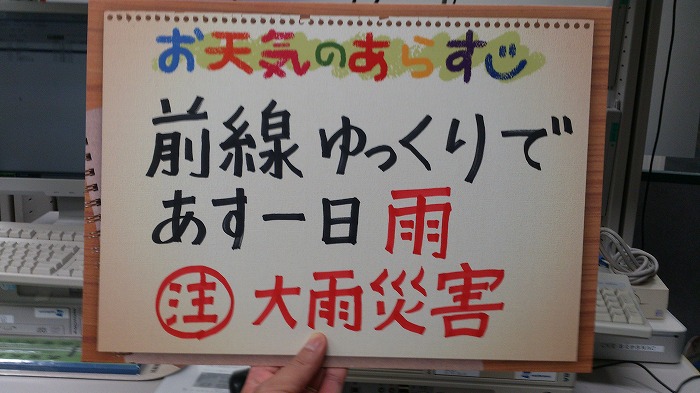 お天気のあらすじ
前線ゆっくりで
あす一日雨
注 大雨災害